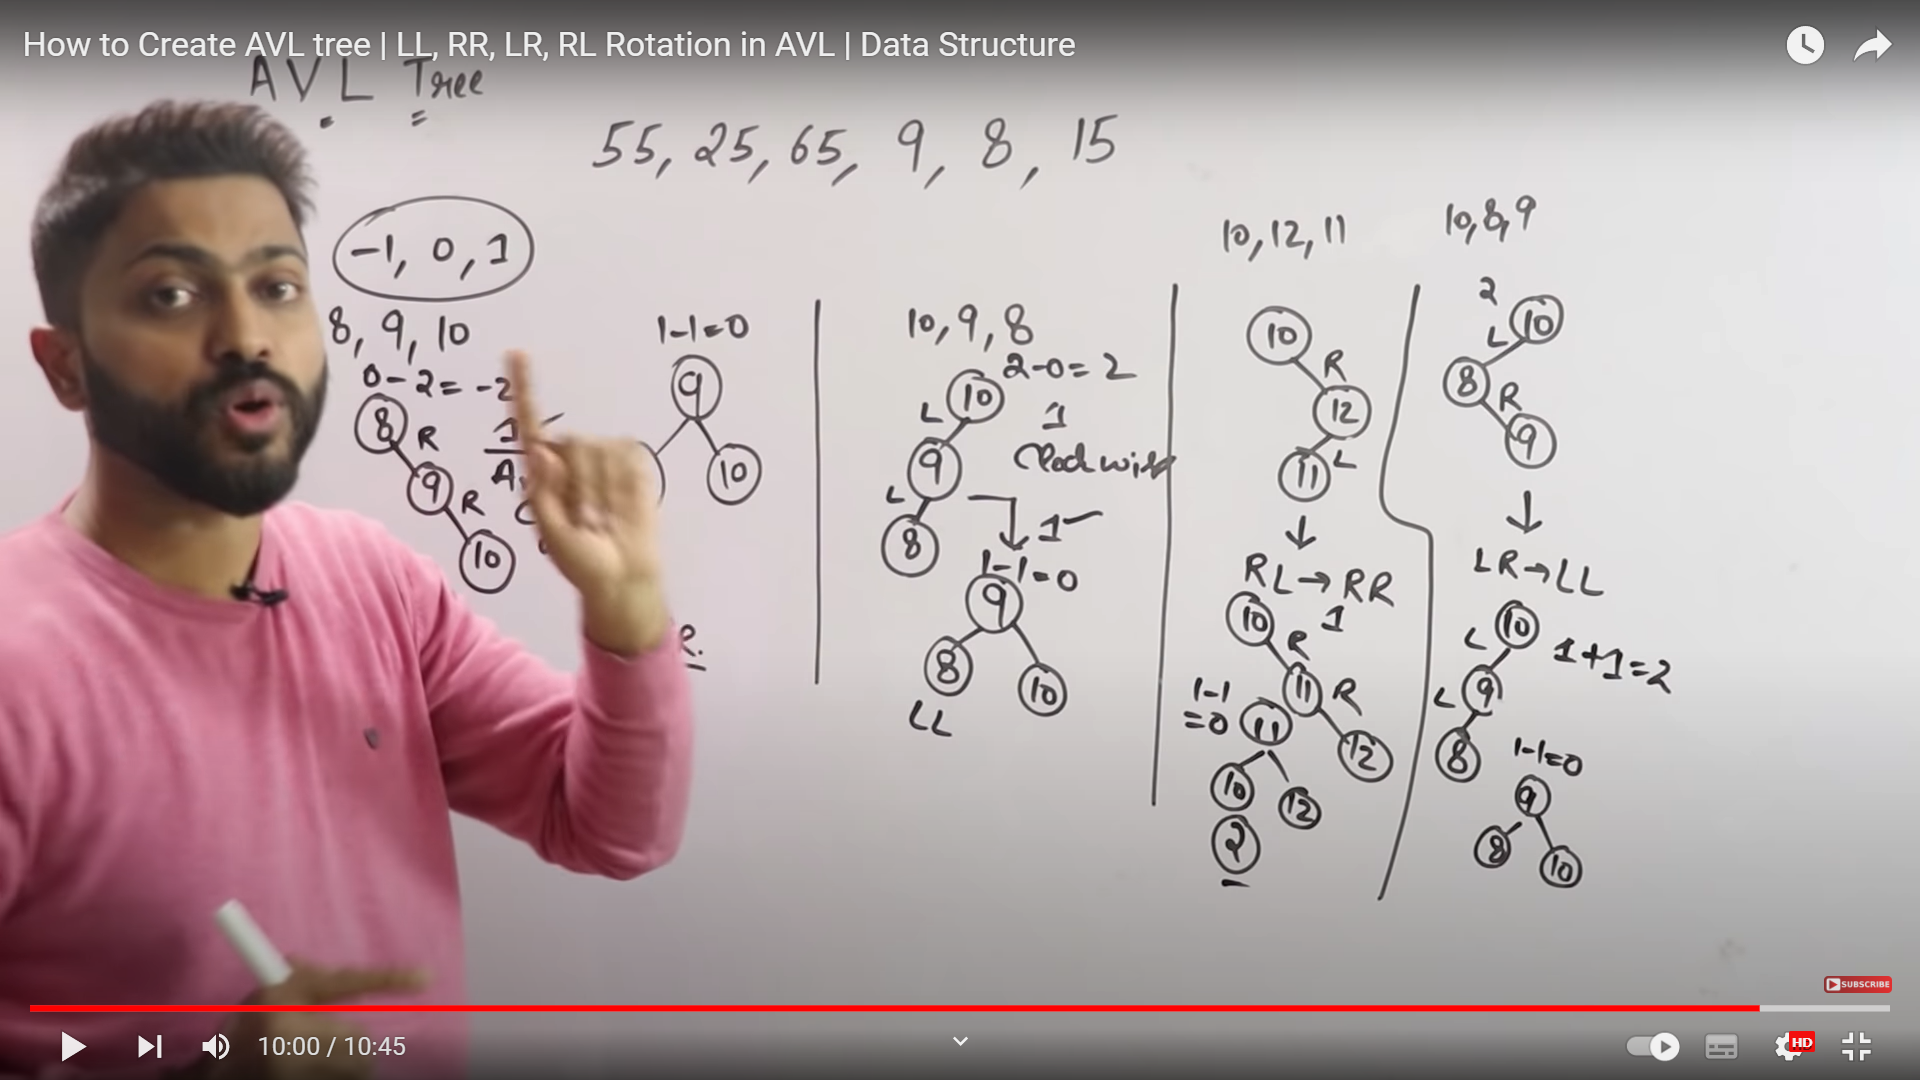 How to Create AVL tree | LL, RR, LR, RL Rotation in AVL | Data Structure
AVL Tree
55, 25, 65, 9, 8, 15
-1, 0, 1
8, 9, 10
0-2=-2
8
R
9
R
10
1
1-1=0
9
10
R.
10, 9, 8
2-0=2
10
L
9
L
8
1
Clockwise
1
1-1=0
9
8
10
LL
10, 12, 11
10
R
12
L
11
RL→RR
10
1
R
11
R
12
1-1
=0
11
10
12
2
10, 8, 9
2
10
L
8
R
9
LR→LL
10
L
9
L
8
1+1=2
1-1=0
9
8
10
SUBSCRIBE
10:00 / 10:45
HD